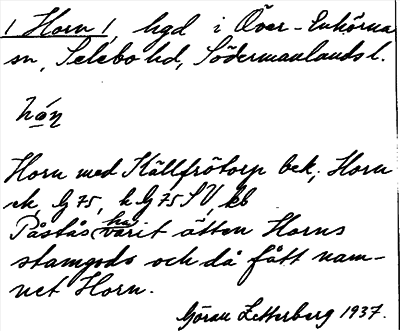 1 Horn 1, hgd i Över-Enhörna
sn, Selebo hd, Södermanlands l.
Horn med Källfrötorp bek; Horn
ek, G 75, h G 75 SV, kb
Påstås ha varit ätten Horns
stamgods och då fått nam-
net Horn.
Göran Zetterberg 1937.